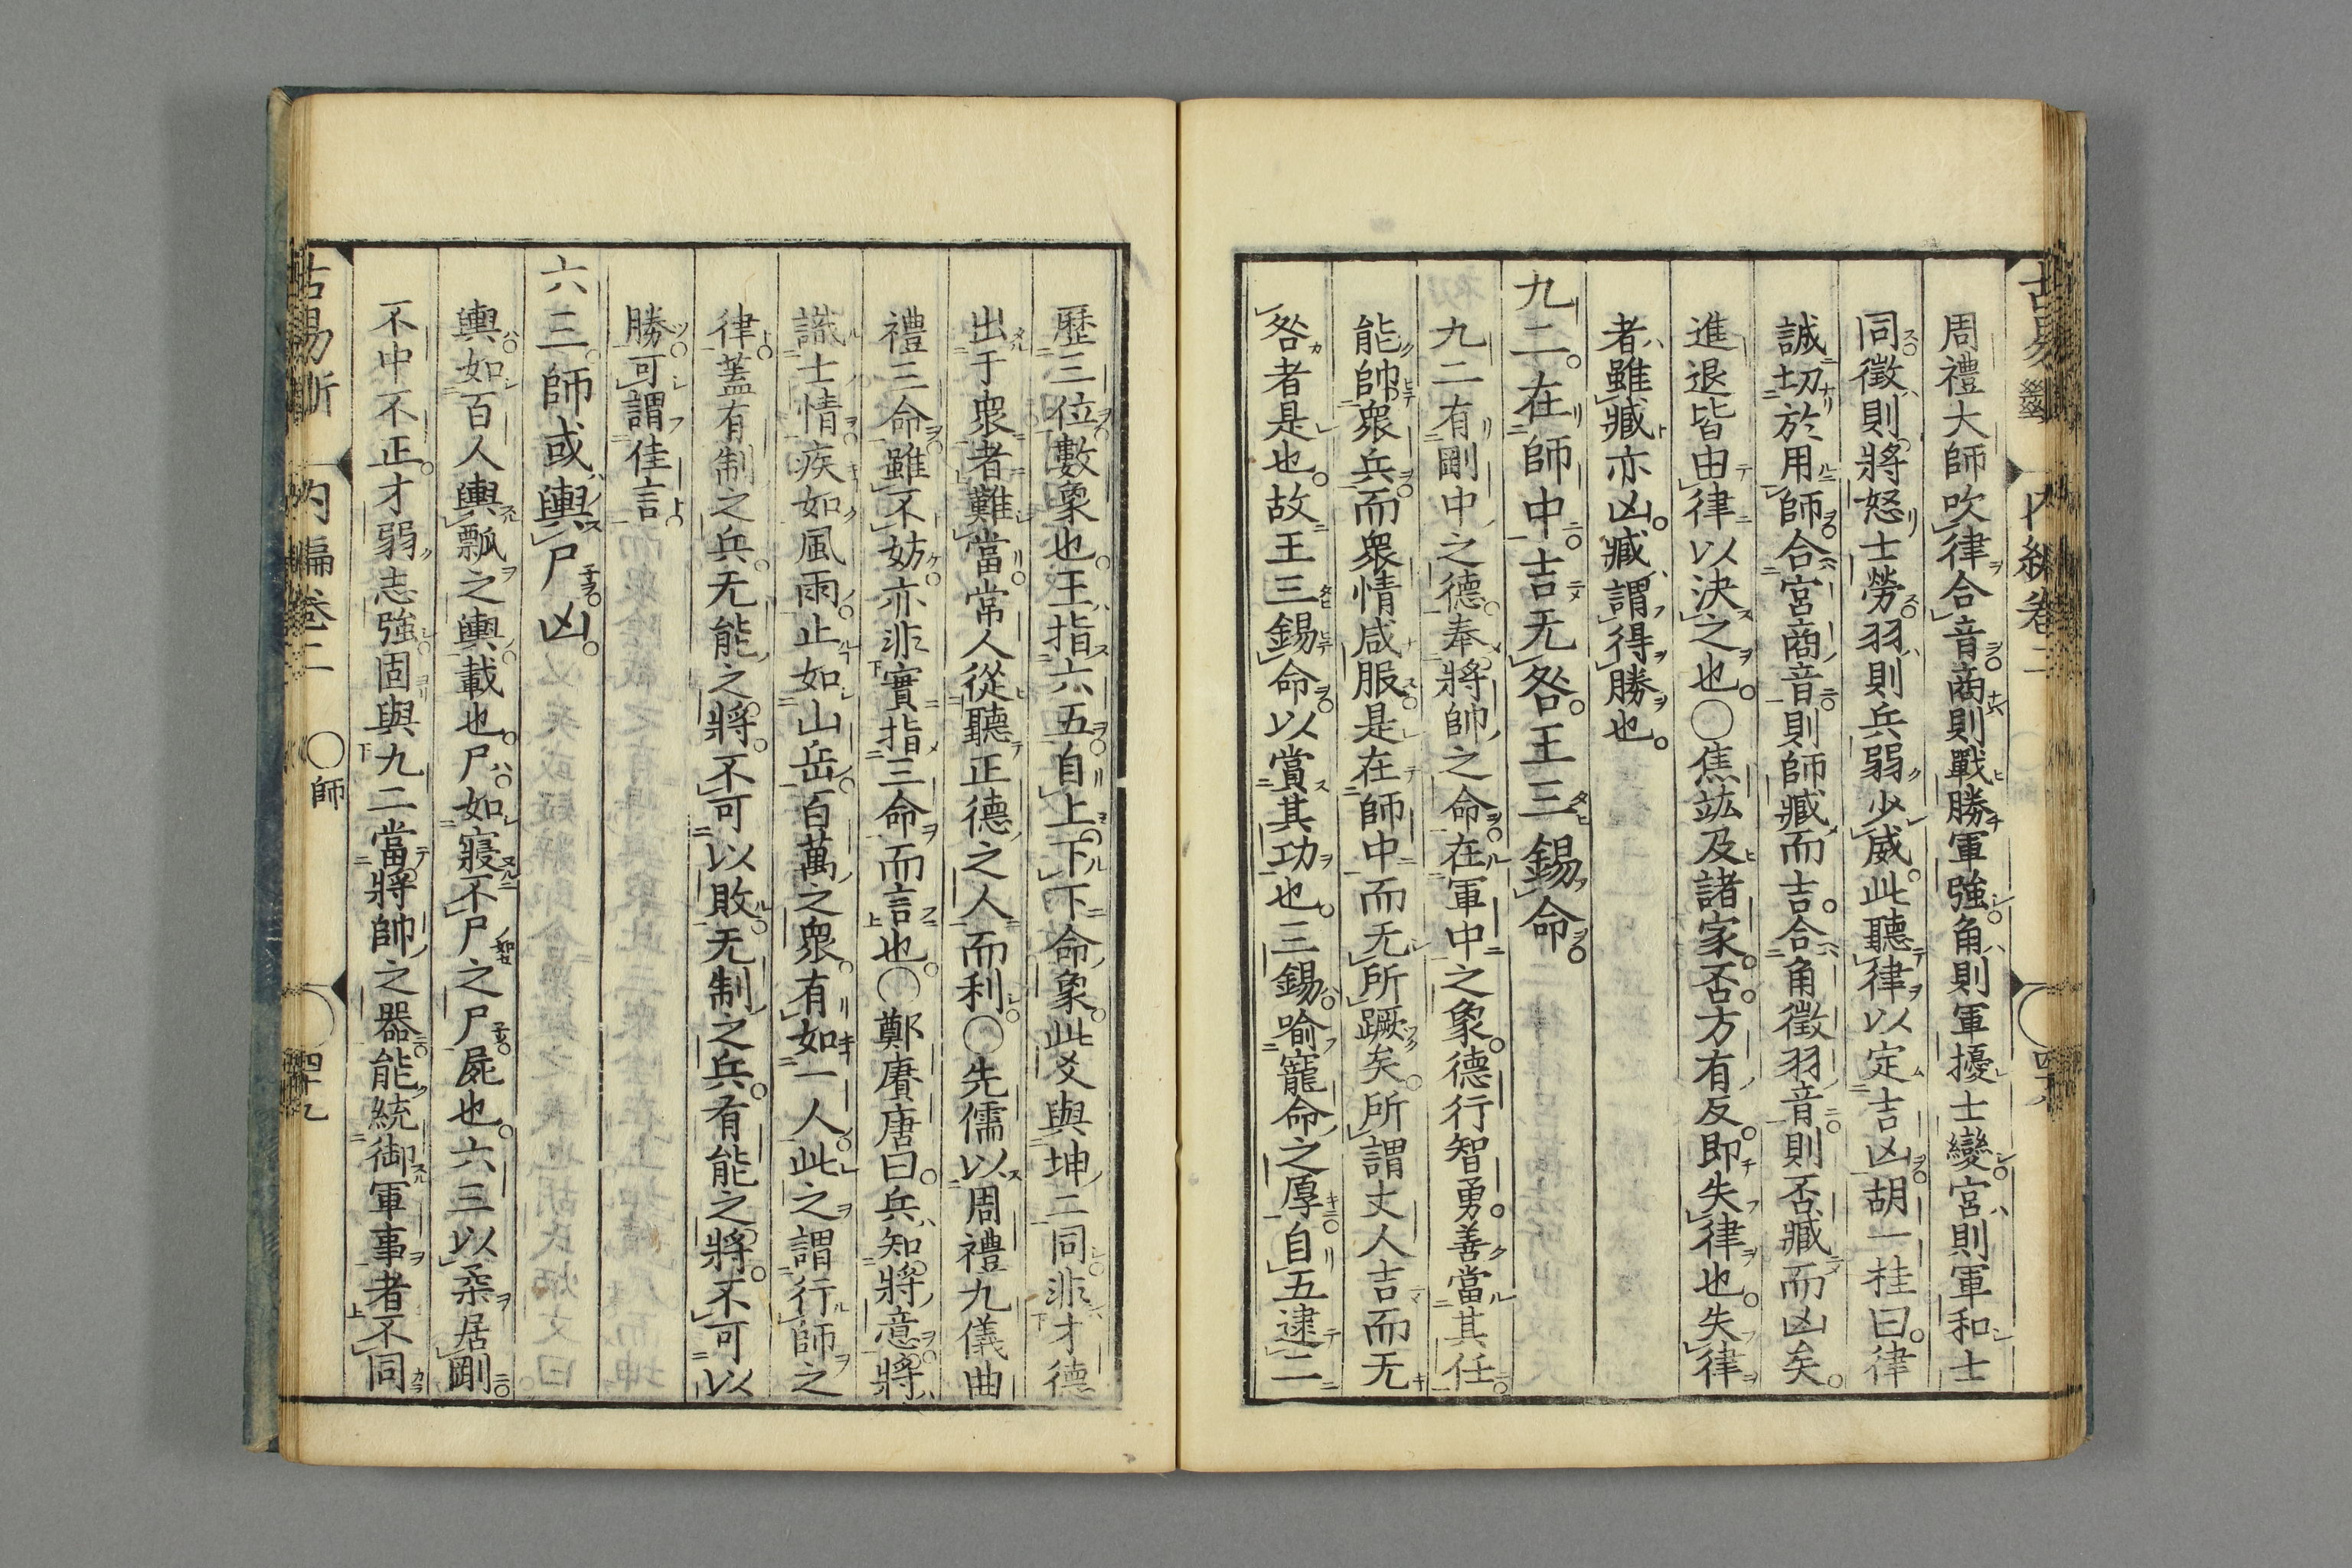 周禮大師吹律合音商則戰勝軍強角則軍擾士變宮則軍和士
同徵則將怒士勞羽則兵弱少威此聽律以定吉凶胡一桂曰律
誠切於用師合宮商音則師臧而吉合角徵羽音則否臧而凶矣
進退皆由律以決之也〇焦竑及諸家否方有反即失律也失律
者雖臧亦凶臧謂得勝也
九二在師中吉无咎王三錫命
九二有剛中之德奉將帥之命在軍中之象德行智勇善當其任
能帥眾兵而眾情咸服是在師中而无所蹶矣所謂丈人吉而无
咎者是也故王三錫命以賞其功也三錫喻寵命之厚自五逮二
歷三位數象也王指六五自上下下命象此爻與坤二同非才德
出于眾者難當常人從聽正德之人而利〇先儒以周禮九儀曲
禮三命雖不妨亦非實指三命而言也〇鄭賡唐曰兵知將意將
識士情疾如風雨止如山岳百萬之眾有如一人此之謂行師之
律蓋有制之兵无能之將不可以敗无制之兵有能之將不可以
勝可謂佳言
六三師或輿尸凶
輿如百人輿瓢之輿載也尸如寢不尸之尸屍也六三以柔居剛
不中不正才弱志強固與九二當將帥之器能統御軍事者不同
古易斷 內編卷二 〇師 四十九